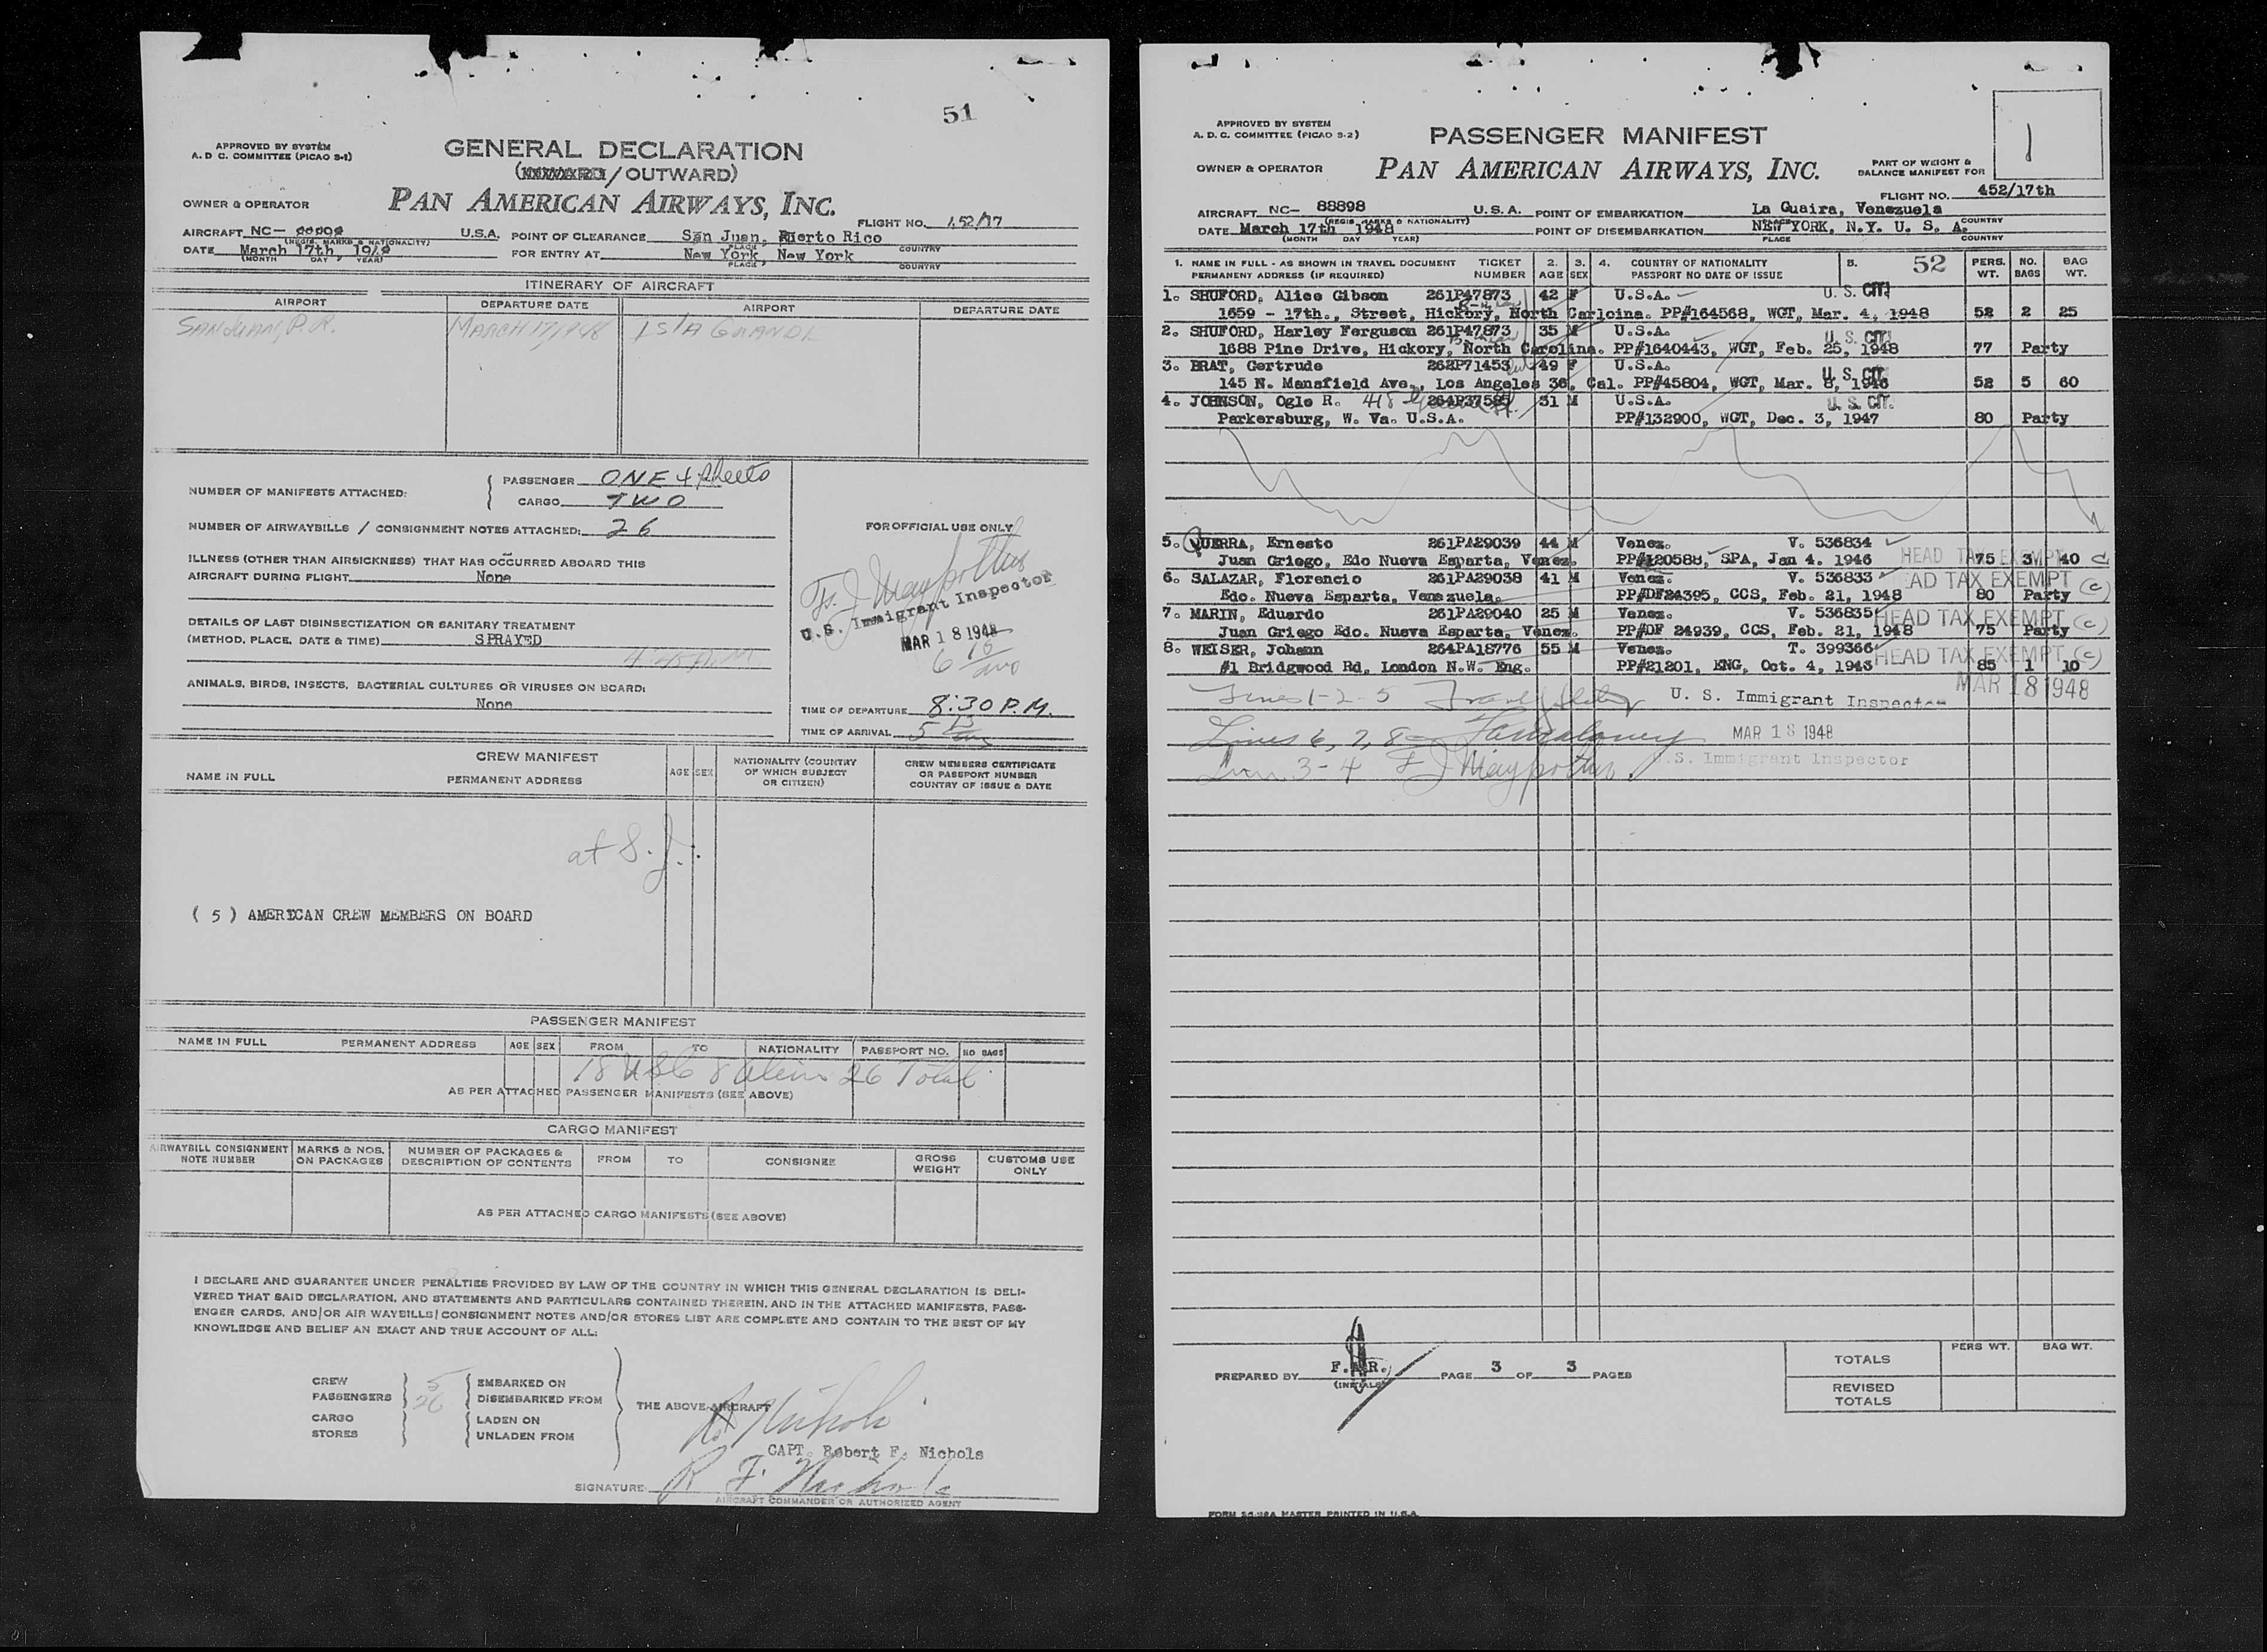 51
APPROVED BY SYSTEM
A. D C. COMMITTEE (PICAO S-1)
GENERAL DECLARATION
/ OUTWARD)
OWNER & OPERATOR
PAN AMERICAN AIRWAYS, INC.
FLIGHT NO. 452/17
AIRCRAFT NC- U.S.A. POINT OF CLEARANCE San Juan, Puerto Rico
(REGIS. MARKS & NATIONALITY) PLACE COUNTRY
DATE March 17th 1948 FOR ENTRY AT New York, New York
(MONTH DAY YEAR) PLACE COUNTRY
ITINERARY OF AIRCRAFT
AIRPORT DEPARTURE DATE AIRPORT DEPARTURE DATE
SAN JUAN, P.R. MARCH 17, 1948 ISLA GRANDE
NUMBER OF MANIFESTS ATTACHED: PASSENGER ONE 4 sheets
CARGO TWO
NUMBER OF AIRWAYBILLS / CONSIGNMENT NOTES ATTACHED: 26
FOR OFFICIAL USE ONLY
ILLNESS (OTHER THAN AIRSICKNESS) THAT HAS OCCURRED ABOARD THIS
AIRCRAFT DURING FLIGHT None
U.S. Immigrant Inspector
MAR 18 1948
DETAILS OF LAST DISINSECTIZATION OR SANITARY TREATMENT
(METHOD, PLACE, DATE & TIME) SPRAYED
ANIMALS, BIRDS, INSECTS, BACTERIAL CULTURES OR VIRUSES ON BOARD:
None
TIME OF DEPARTURE 8:30 P.M.
TIME OF ARRIVAL
CREW MANIFEST
NAME IN FULL PERMANENT ADDRESS AGE SEX NATIONALITY (COUNTRY OF WHICH SUBJECT OR CITIZEN) CREW MEMBERS CERTIFICATE OR PASSPORT NUMBER COUNTRY OF ISSUE & DATE
at S. J.
( 5 ) AMERICAN CREW MEMBERS ON BOARD
PASSENGER MANIFEST
NAME IN FULL PERMANENT ADDRESS AGE SEX FROM TO NATIONALITY PASSPORT NO. NO BAGS
18 USC 8 Aliens 26 Total
AS PER ATTACHED PASSENGER MANIFESTS (SEE ABOVE)
CARGO MANIFEST
AIRWAYBILL CONSIGNMENT NOTE NUMBER MARKS & NOS. ON PACKAGES NUMBER OF PACKAGES & DESCRIPTION OF CONTENTS FROM TO CONSIGNEE GROSS WEIGHT CUSTOMS USE ONLY
AS PER ATTACHED CARGO MANIFESTS (SEE ABOVE)
I DECLARE AND GUARANTEE UNDER PENALTIES PROVIDED BY LAW OF THE COUNTRY IN WHICH THIS GENERAL DECLARATION IS DELI-
VERED THAT SAID DECLARATION, AND STATEMENTS AND PARTICULARS CONTAINED THEREIN, AND IN THE ATTACHED MANIFESTS, PASS-
ENGER CARDS, AND/OR AIR WAYBILLS/CONSIGNMENT NOTES AND/OR STORES LIST ARE COMPLETE AND CONTAIN TO THE BEST OF MY
KNOWLEDGE AND BELIEF AN EXACT AND TRUE ACCOUNT OF ALL:
CREW 5 EMBARKED ON
PASSENGERS 26 DISEMBARKED FROM
THE ABOVE AIRCRAFT
CARGO LADEN ON
STORES UNLADEN FROM
CAPT. Robert F. Nichols
SIGNATURE R. F. Nichols
AIRCRAFT COMMANDER OR AUTHORIZED AGENT
APPROVED BY SYSTEM
A. D. C. COMMITTEE (PICAO S-2)
PASSENGER MANIFEST
1
OWNER & OPERATOR
PAN AMERICAN AIRWAYS, INC.
PART OF WEIGHT &
BALANCE MANIFEST FOR
FLIGHT NO. 452/17th
AIRCRAFT NC- 88898 U.S.A. POINT OF EMBARKATION La Guaira, Venezuela
(REGIS MARKS & NATIONALITY) PLACE COUNTRY
DATE March 17th 1948 POINT OF DISEMBARKATION NEW YORK, N.Y. U. S. A.
(MONTH DAY YEAR) PLACE COUNTRY
1. NAME IN FULL - AS SHOWN IN TRAVEL DOCUMENT TICKET 2. 3. 4. COUNTRY OF NATIONALITY 5. 52 PERS. NO. BAG
PERMANENT ADDRESS (IF REQUIRED) NUMBER AGE SEX PASSPORT NO DATE OF ISSUE WT. BAGS WT.
1. SHUFORD, Alice Gibson 261P47873 42 F U.S.A. U. S. CIT.
1659 - 17th., Street, Hickory, North Carlcina. PP#164568, WGT, Mar. 4, 1948 52 2 25
2. SHUFORD, Harley Ferguson 261P47873 35 M U.S.A. U. S. CIT.
1688 Pine Drive, Hickory, North Carolina. PP#1640443, WGT, Feb. 25, 1948 77 Party
3. BRAT, Gertrude 262P71453 49 F U.S.A. U. S. CIT.
145 N. Mansfield Ave., Los Angeles 36, Cal. PP#45804, WGT, Mar. 8, 1946 52 5 60
4. JOHNSON, Ogle R. 264P37585 31 M U.S.A. U. S. CIT.
Parkersburg, W. Va. U.S.A. PP#132900, WGT, Dec. 3, 1947 80 Party
5. QUERRA, Ernesto 261PA29039 44 M Venez. V. 536834
Juan Griego, Edo Nueva Esparta, Venez. PP#120588, SPA, Jan 4. 1946 HEAD TAX EXEMPT 75 3 40 C
6. SALAZAR, Florencio 261PA29038 41 M Venez. V. 536833 HEAD TAX EXEMPT
Edo. Nueva Esparta, Venezuela. PP#DF24395, CCS, Feb. 21, 1948 80 Party (c)
7. MARIN, Eduardo 261PA29040 25 M Venez. V. 536835 HEAD TAX EXEMPT
Juan Griego Edo. Nueva Esparta, Venez. PP#DF 24939, CCS, Feb. 21, 1948 75 Party (c)
8. WEISER, Johann 264PA18776 55 M Venez. T. 399366 HEAD TAX EXEMPT (c)
#1 Bridgwood Rd, London N.W. Eng. PP#21201, ENG, Oct. 4, 1943 85 1 10
Lines 1-2-5 U. S. Immigrant Inspector MAR 18 1948
Lines 6, 7, 8 MAR 18 1948
Lines 3-4 U.S. Immigrant Inspector
PREPARED BY F.A.R. PAGE 3 OF 3 PAGES
(INITIALS)
PERS WT. BAG WT.
TOTALS
REVISED TOTALS
FORM SC-28A MASTER PRINTED IN U.S.A.